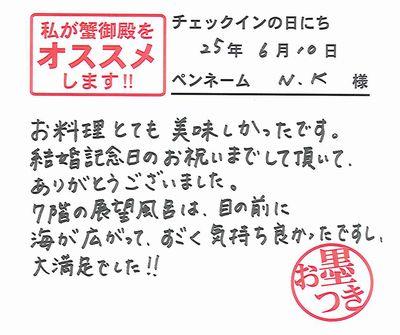 私が蟹御殿を
オススメ
します!!
チェックインの日にち
25年 6月10日
ペンネーム N.K 様
お料理とても美味しかったです。
結婚記念日のお祝いまでして頂いて、
ありがとうございました。
7階の展望風呂は、目の前に
海が広がって、すごく気持ち良かったですし、
大満足でした!!
お墨つき